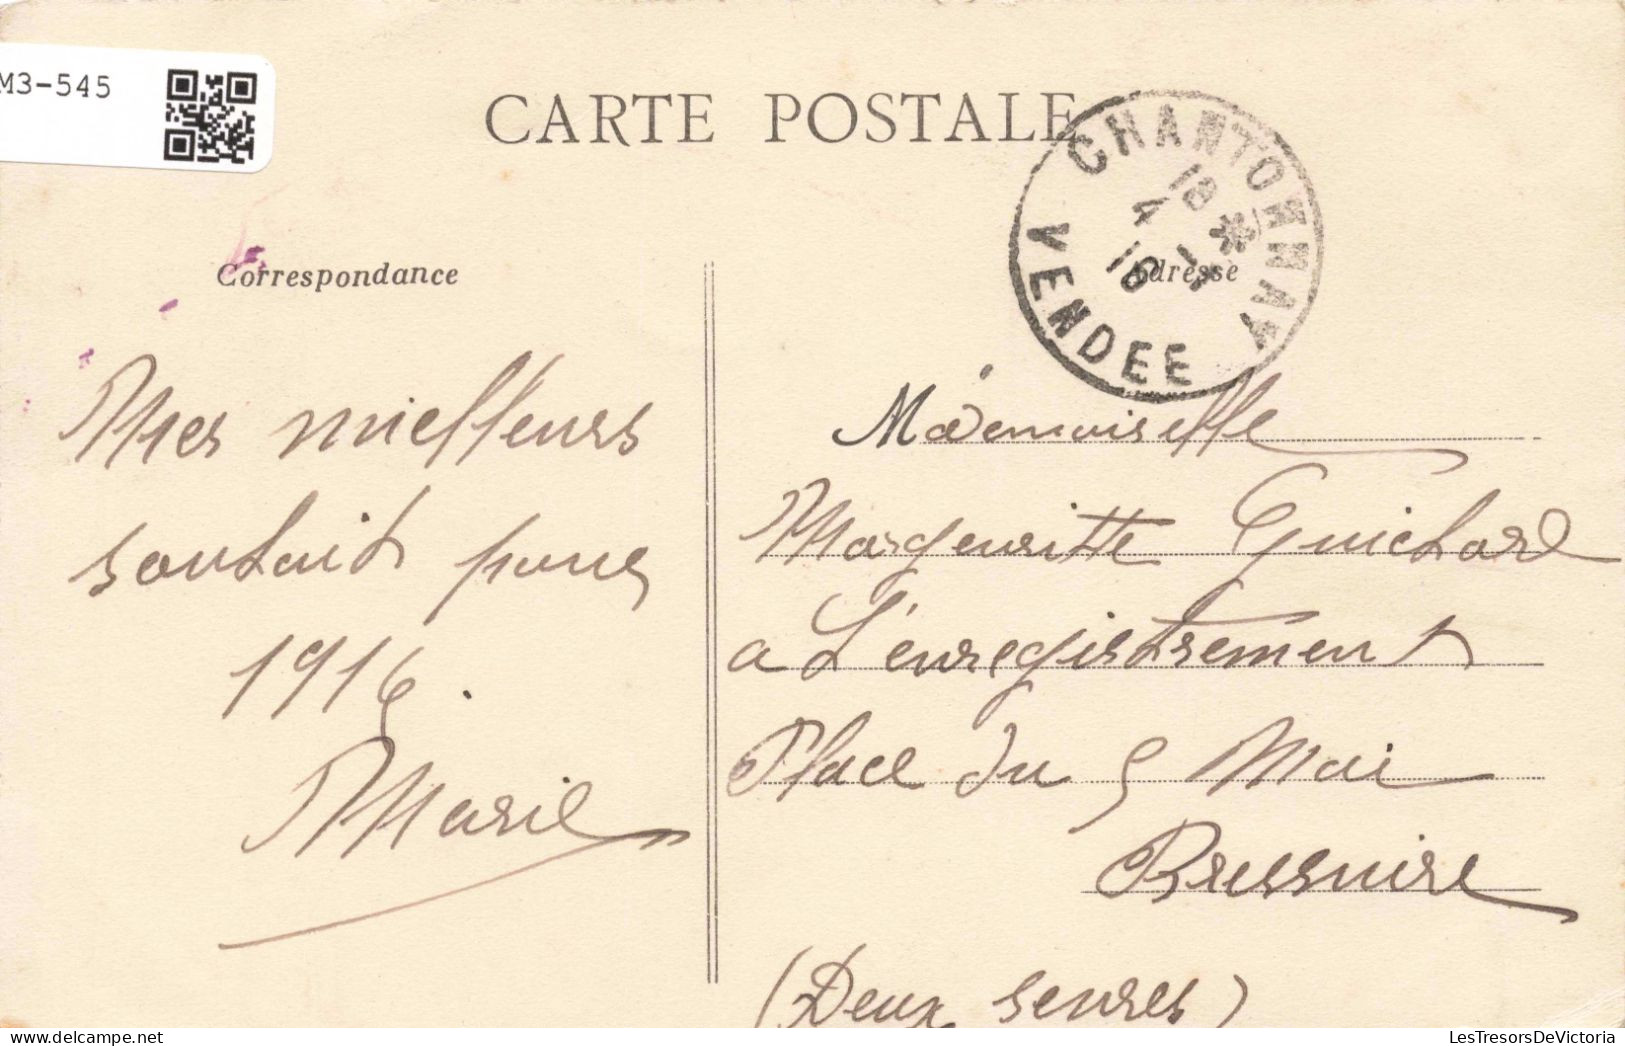 M3-545
CARTE POSTALE
CHANTONNAY
18 *
4 - 1
16
VENDEE
Correspondance
Adresse
Mes meilleurs
souhait pour
1916.
Marie
Mademoiselle
Margueritte Guichard
a L'enregistrement
Place du 5 Mai
Bressuire
(Deux sevres)
LesTresorsDeVictoria